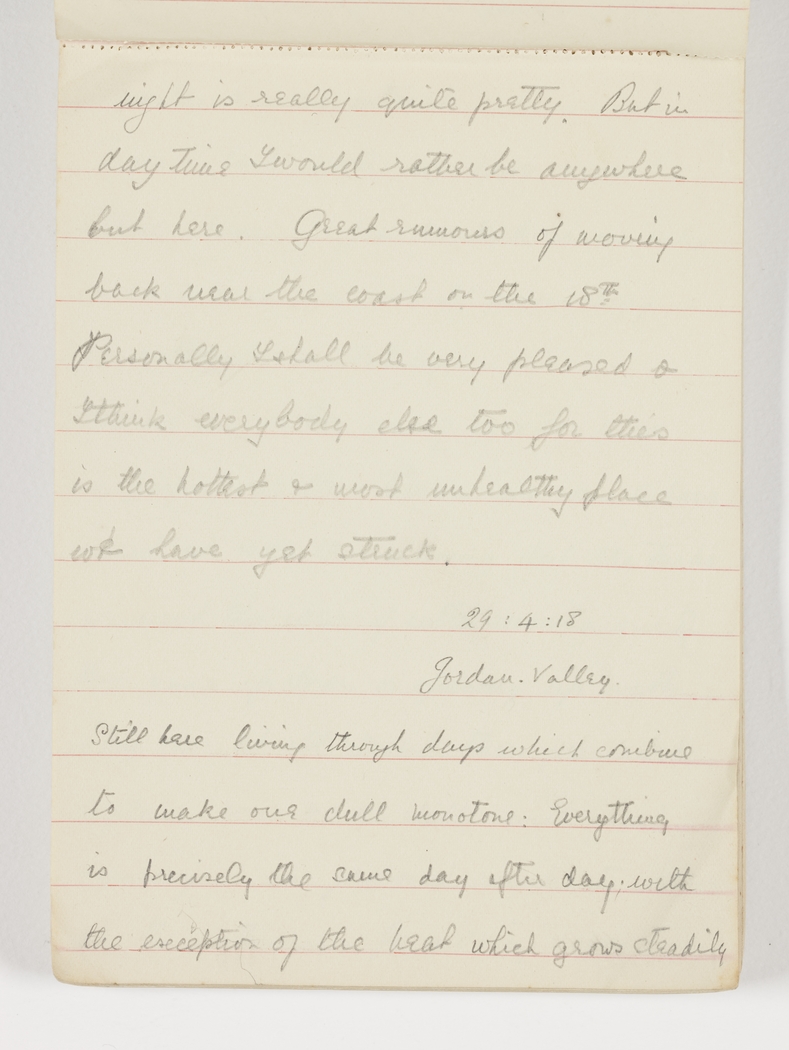 night is really quite pretty. But in
day time I would rather be anywhere
but here. Great rumours of moving
back near the coast on the 18th
Personally I shall be very pleased &
I think everybody else too for this
is the hottest & most unhealthy place
we have yet struck.
29:4:18
Jordan. Valley.
Still here living through days which combine
to make one dull monotone: Everything
is precisely the same day after day; with
the exception of the heat which grows steadily